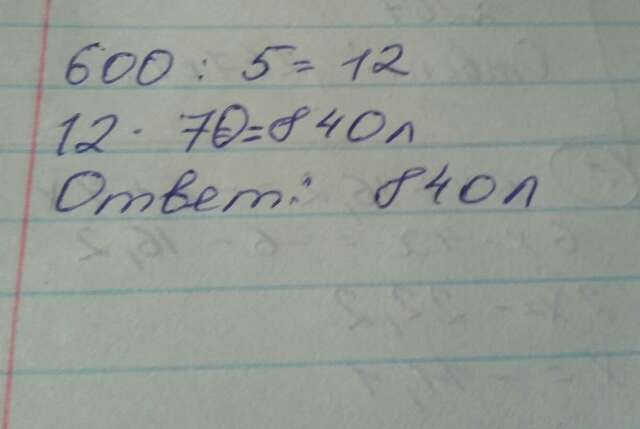 600 : 5 = 12
12 · 70 = 840 л
Ответ: 840 л